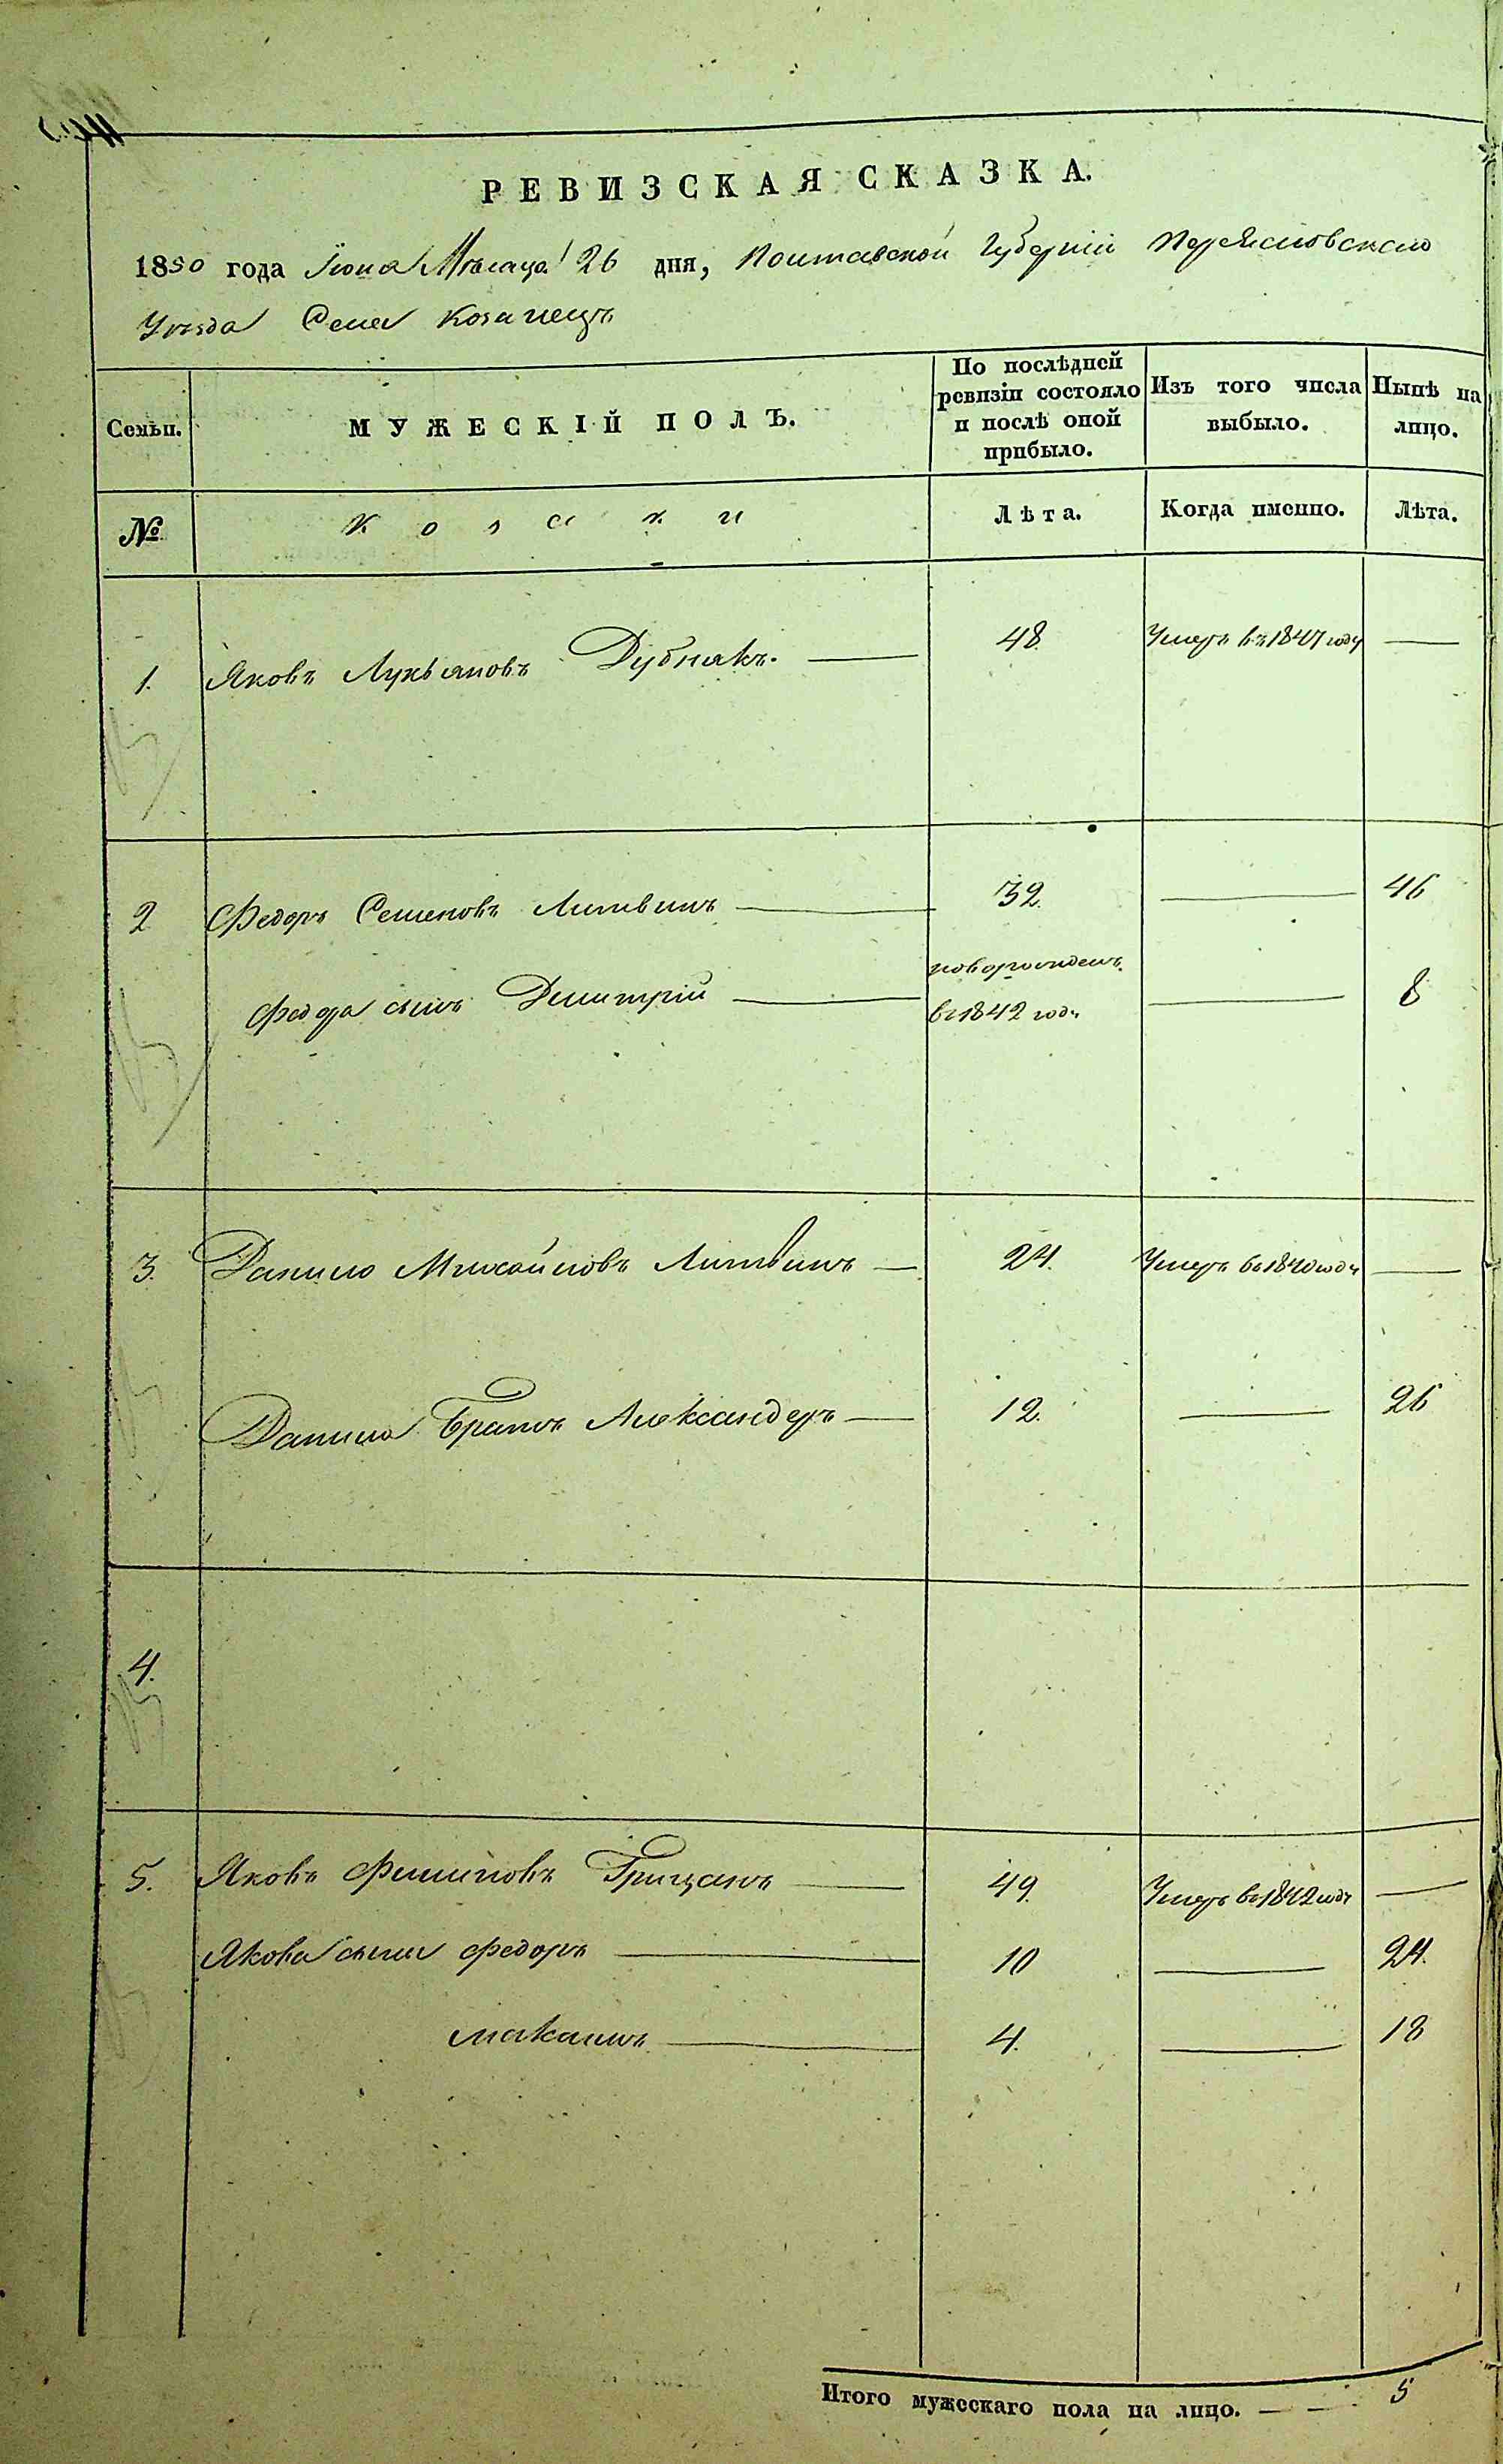 РЕВИЗСКАЯ СКАЗКА.
1850 года Іюня Мѣсяца 26 дня, Полтавской Губерніи Переяславскаго
Уѣзда Села Козинецъ
Семьи. МУЖЕСКІЙ ПОЛЪ. По послѣдней ревизіи состояло и послѣ оной прибыло. Изъ того числа выбыло. Нынѣ на лицо.
№ Козаки Лѣта. Когда именно. Лѣта.
1. Яковъ Лукьяновъ Дубнякъ. — 48. Умеръ въ 1847 году —
2 Федоръ Семеновъ Литвинъ — 32. — 46
Федора сынъ Димитрій — новорожденъ въ 1842 году — 8
3. Данило Михайловъ Литвинъ — 24. Умеръ въ 1840 году —
Данила Братъ Александеръ — 12. — 26
4.
5. Яковъ Филиповъ Грицанъ — 49. Умеръ въ 1842 году —
Якова сыны Федоръ — 10 — 24.
Макаимъ — 4. — 18
Итого мужескаго пола на лицо. — — 5